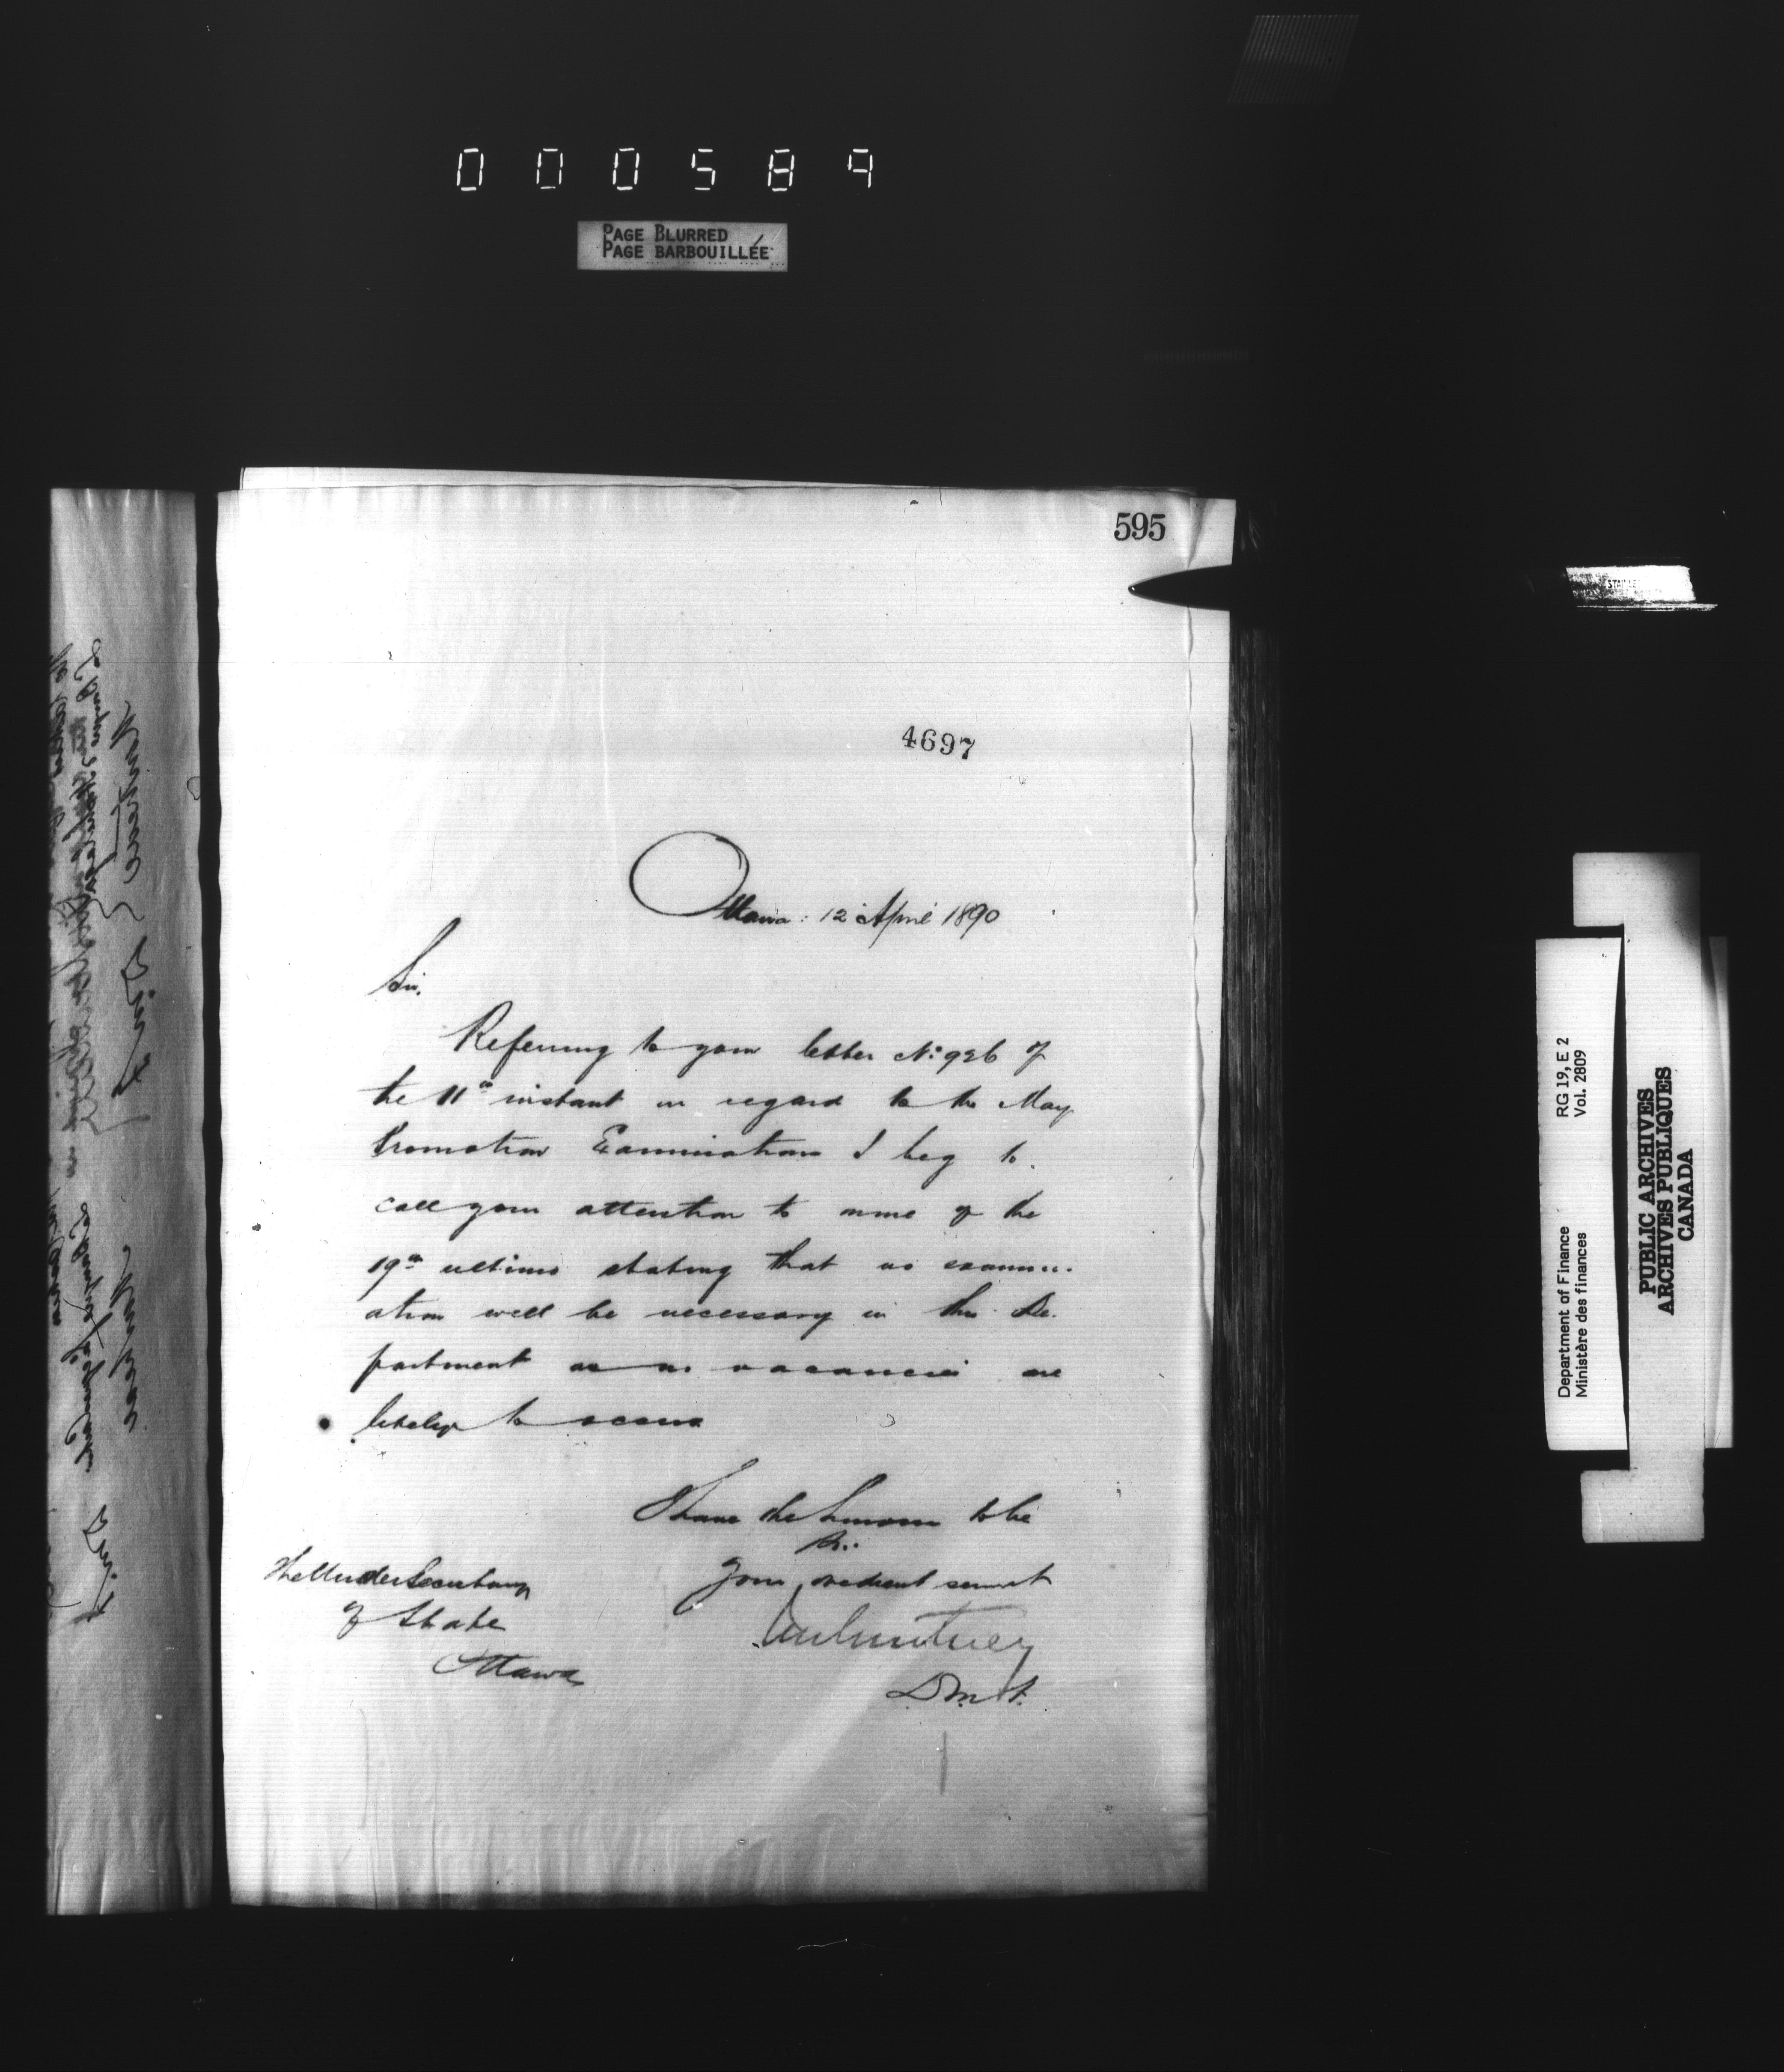 000589
PAGE BLURRED
PAGE BARBOUILLÉE
595
4697
Ottawa: 12 April 1890
Sir,
Referring to your letter No 926 of
the 11th instant in regard to the May
Promotion Examinations I beg to
call your attention to mine of the
19th ultimo stating that no examin-
ation will be necessary in this De-
partment as no vacancies are
likely to occur
I have the honour to be
Sir
Your obedient servant
JmCourtney
D.M.F.
The Under Secretary
of State
Ottawa
Department of Finance
Ministère des finances
RG 19, E 2
Vol. 2809
PUBLIC ARCHIVES
ARCHIVES PUBLIQUES
CANADA